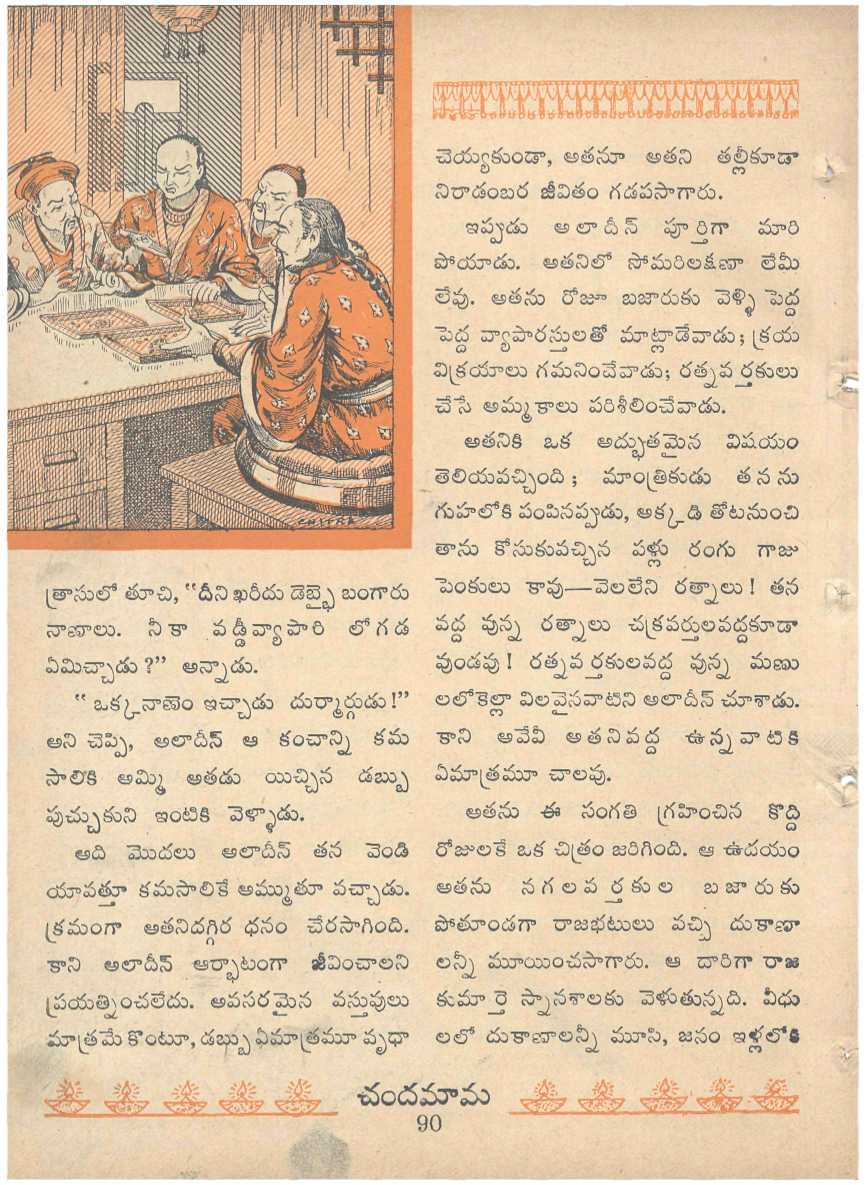 CHITRA
త్రాసులో తూచి, “దీని ఖరీదు డెబ్భై బంగారు
నాణాలు. నీకా వడ్డీవ్యాపారి లోగడ
ఏమిచ్చాడు?” అన్నాడు.
“ఒక్కనాణెం ఇచ్చాడు దుర్మార్గుడు!”
అని చెప్పి, అలాదీన్ ఆ కంచాన్ని కమ
సాలికి అమ్మి అతడు యిచ్చిన డబ్బు
పుచ్చుకుని ఇంటికి వెళ్ళాడు.
అది మొదలు అలాదీన్ తన వెండి
యావత్తూ కమసాలికే అమ్ముతూ వచ్చాడు.
క్రమంగా అతనిదగ్గిర ధనం చేరసాగింది.
కాని అలాదీన్ ఆర్భాటంగా జీవించాలని
ప్రయత్నించలేదు. అవసరమైన వస్తువులు
మాత్రమే కొంటూ, డబ్బు ఏమాత్రమూ వృథా
చెయ్యకుండా, అతనూ అతని తల్లీకూడా
నిరాడంబర జీవితం గడపసాగారు.
ఇప్పుడు అలాదీన్ పూర్తిగా మారి
పోయాడు. అతనిలో సోమరిలక్షణా లేమీ
లేవు. అతను రోజూ బజారుకు వెళ్ళి పెద్ద
పెద్ద వ్యాపారస్తులతో మాట్లాడేవాడు; క్రయ
విక్రయాలు గమనించేవాడు; రత్నవర్తకులు
చేసే అమ్మకాలు పరిశీలించేవాడు.
అతనికి ఒక అద్భుతమైన విషయం
తెలియవచ్చింది; మాంత్రికుడు తనను
గుహలోకి పంపినప్పుడు, అక్కడి తోటనుంచి
తాను కోసుకువచ్చిన పళ్లు రంగు గాజు
పెంకులు కావు—వెలలేని రత్నాలు! తన
వద్ద వున్న రత్నాలు చక్రవర్తులవద్దకూడా
వుండవు! రత్నవర్తకులవద్ద వున్న మణు
లలోకెల్లా విలవైనవాటిని అలాదీన్ చూశాడు.
కాని అవేవీ అతనివద్ద ఉన్నవాటికి
ఏమాత్రమూ చాలవు.
అతను ఈ సంగతి గ్రహించిన కొద్ది
రోజులకే ఒక చిత్రం జరిగింది. ఆ ఉదయం
అతను నగలవర్తకుల బజారుకు
పోతూండగా రాజభటులు వచ్చి దుకాణా
లన్నీ మూయించసాగారు. ఆ దారిగా రాజ
కుమార్తె స్నానశాలకు వెళుతున్నది. వీథు
లలో దుకాణాలన్నీ మూసి, జనం ఇళ్లలోకి
చందమామ
90